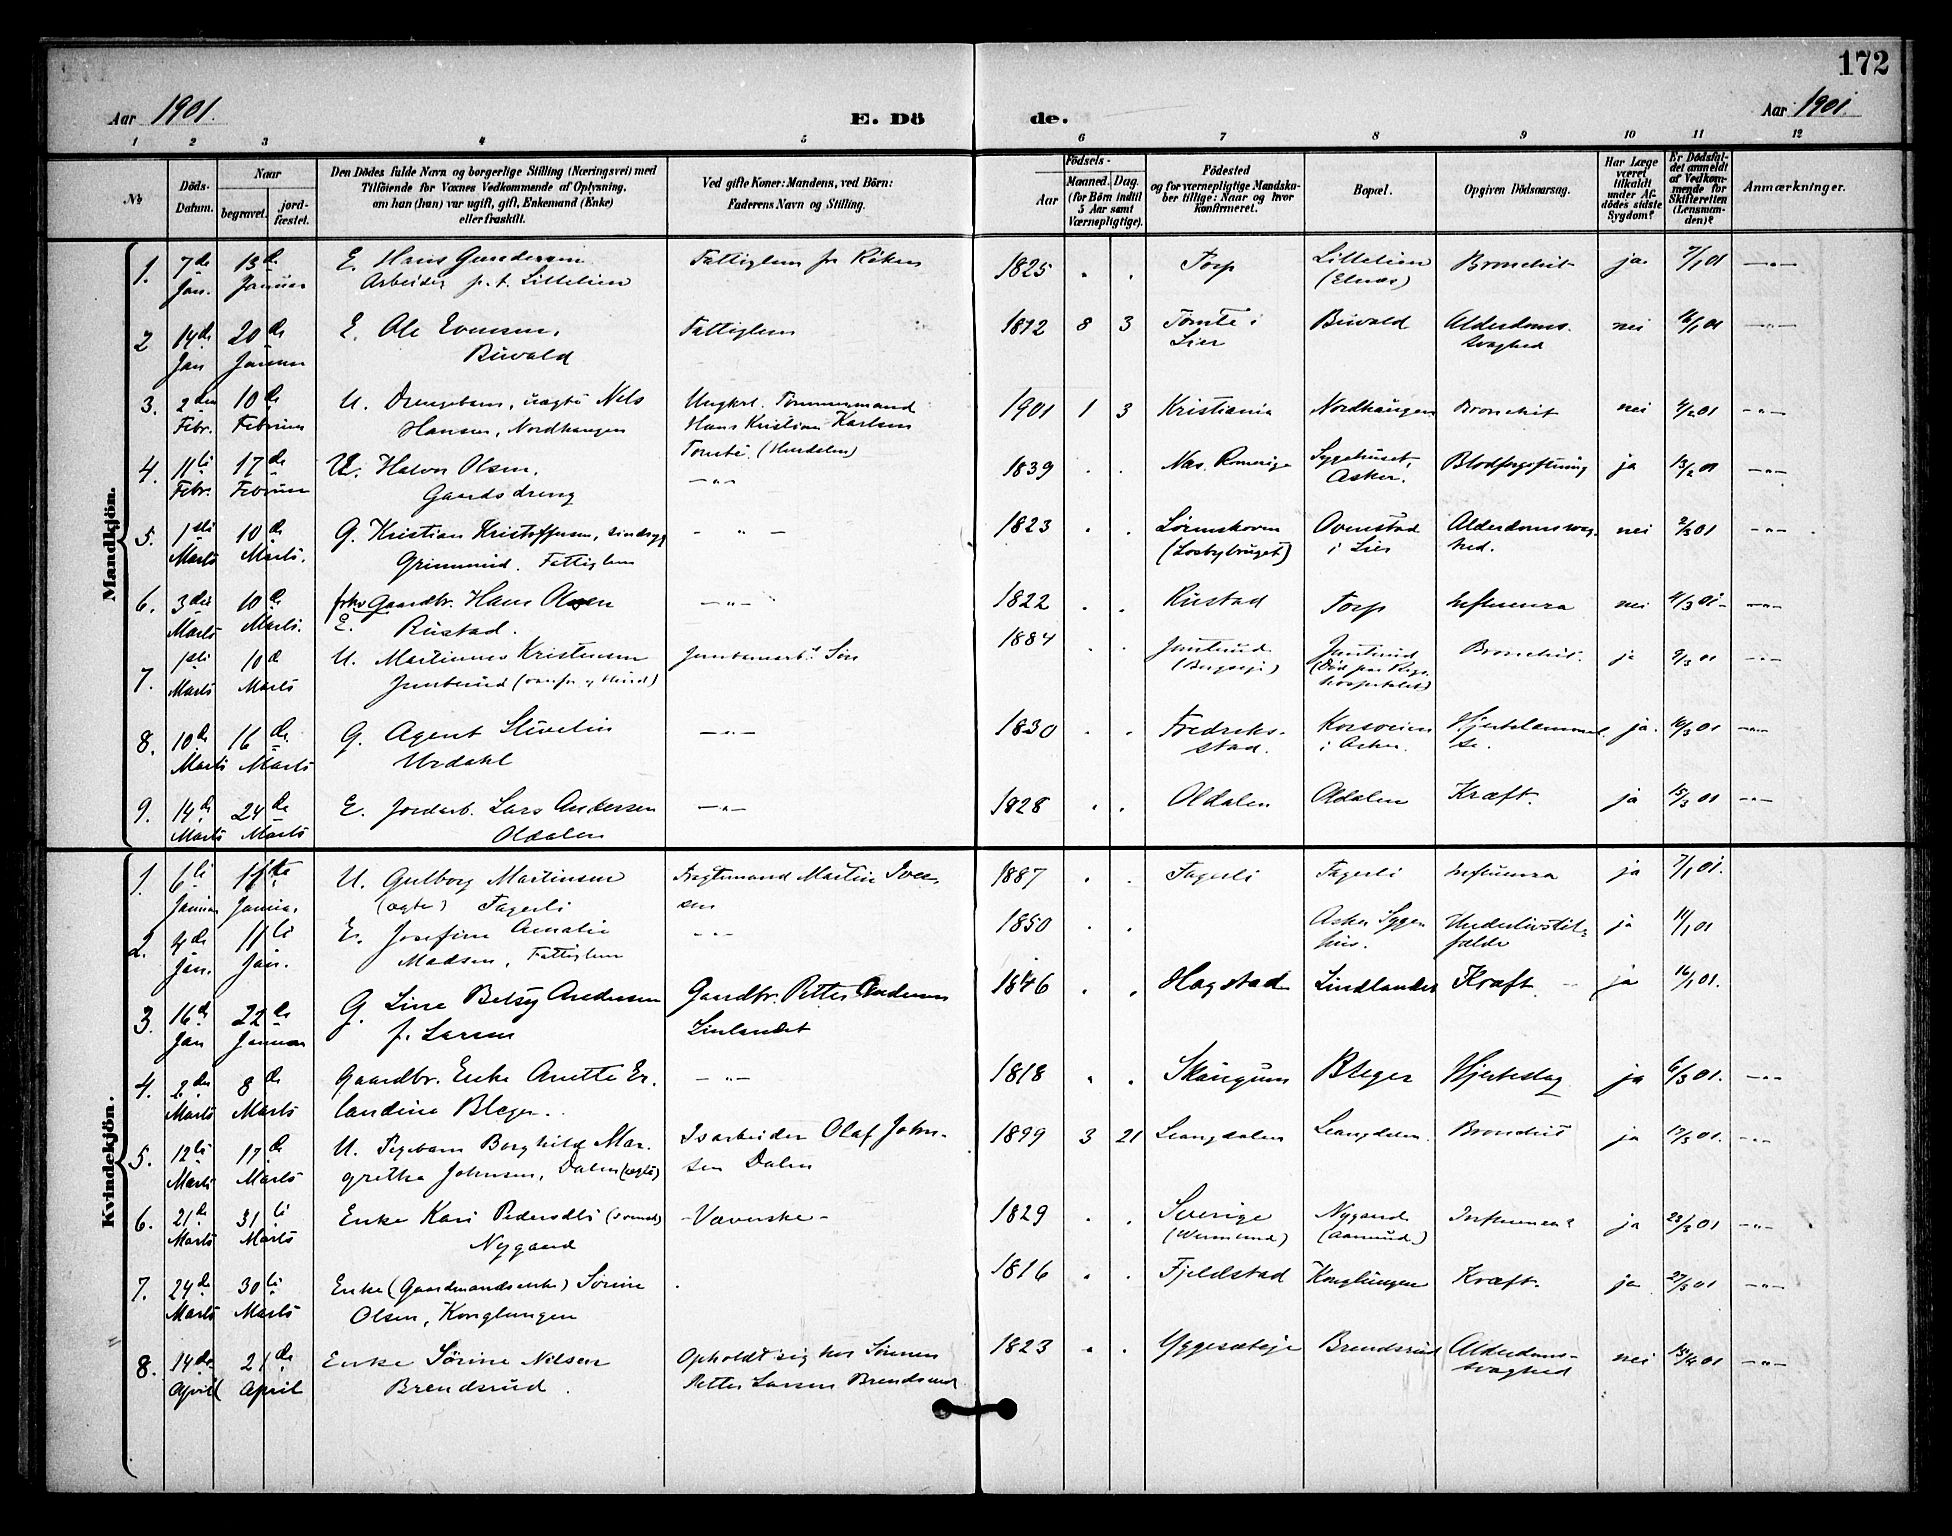 172
Aar 1901.
E. Döde.
Aar 1901.
1 2 3 4 5 6 7 8 9 10 11 12
№
Döds-Datum.
Naar
begravet.
jord-fæstet.
Den Dödes fulde Navn og borgerlige Stilling (Næringsvei) med
Tilföiende for Voxnes Vedkommende af Oplysning,
om han (hun) var ugift, gift, Enkemand (Enke)
eller fraskilt.
Ved gifte Koner: Mandens, ved Börn:
Faderens Navn og Stilling.
Födsels-
Aar
Maaned. Dag.
(for Börn indtil
5 Aar samt
Værnepligtige).
Födested
og for værnepligtige Mandska-
ber tillige: Naar og hvor
Konfirmeret.
Bopæl.
Opgiven Dödsaarsag.
Har Læge
været
tilkaldt
under Af-
dödes sidste
Sygdom?
Er Dödsfal-
det anmeldt
af Vedkom-
mende for
Skifteretten
(Lensman-
den)?
Anmærkninger.
Mandkjön.
1. 7de 13de E. Hans Gundersen Fattiglem fr Röken 1825 " " Torp Lillelien Bronchit ja 7/1 01 —"—
Jan. Januar Arbeider p.t. Lillelien (Elnæs)
2 14de 20de E. Ole Evensen, Fattiglem 1812 8 3 Tomte i Büvald Alderdoms- nei 16/1 01 —"—
Jan Januar Büvald Lier svaghed
3. 2den 10de U. Drengebarn, uægte Nils Ungkrl. Tømmermand 1901 1 3 Kristiania Nordhaugen Bronchit nei 4/2 01 —"—
Febr. Februar Hansen, Nordhaugen Hans Kristian Karlsen
Tomte (Hurdalen)
4. 11te 17de E. Halvor Olsen, —"— 1839 . . Næs, Romerige Sygehuset, Blodforgiftning ja 13/2 01 —"—
Febr. Februar Gaardsdreng Asker.
5. 1ste 10de G. Kristian Kristoffersen, sindssyg — " — 1823 . . Lørenskoven Ovenstad Alderdomssvag- nei 2/3 01 —"—
Marts Marts. Fattiglem (Losbybruget) i Lier hed.
6. 3die 10de frhv Gaardbr. Hans Olsen —"— 1822 . . Rustad Torp Influenza nei 4/3 01 —"—
Marts Marts. E. Rustad.
7. 1ste 10de U. Martinus Kristensen Søn 1884 Bronchit. ja 9/3 01 —"—
Marts Marts
8. 10de 16de G. Agent —"— 1830 . . Fredriks- Korsveien Hjertelammel- ja. 16/3 01 —"—
Marts Marts Urdahl stad. i Asker se.
9. 14de 24de E. Jordarb. Lars Andersen —"— 1828 . . Oldalen Oldalen Kræft. ja 15/3 01 —"—
Marts Marts Oldalen
Kvindekjön.
1. 6te U. Gulborg Martinsen Martin Iver- 1887 . . Fagerli Fagerli Influenza ja 7/1 01.
Januar Januar. (ægte) Fagerli sen
2. 4de 11te E. Josefine Amalie —"— 1850 . . Asker Syge- Underlivstil- ja 14/1 01
Jan. Jan. Madsen, Fattiglem hus. fælde
3. 16de 22de G. Line Betsy Andersen Gaardbr. Petter Andersen 1846 . . Hagstad Lindlandet Kræft. ja 16/1 01.
Jan Januar f. Larsen Linlandet
4. 2den 8de Gaardbr. Enke Anette Er- —"— 1818 " . Skaugum Bleger Hjerteslag ja 6/3 01. —"—
Marts Marts landine Bleger.
5. 12te 17de U. Pigebarn Borghild Mar- Isarbeider Olaf John- 1899 3 21 Leangdalen Leangdalen. Bronchit ja 17/3 01. —"—
Marts Marts gretha Johnsen, Dalen (ægte) sen Dalen
6. 21de 31te Enke Kari Pedersdtr —Væverske— 1829 . . Sverige Nygaard Influenza ja 23/3 01 —"—
Marts Marts Nygaard (Wermland)
7. 24de 30te Enke (Gaardmandsenke) Sörine 1816 " . Fjeldstad Konglungen Kræft. ja 27/3 01 —"—
Marts Marts Olsen, Konglungen
8. 14de 21de Enke Sörine Nilsen Opholdt sig hos Sønnen 1823 . . Yggesæteje Brendsrud Alderdoms- nei 15/4 01 —"—
April April Brendsrud. Petter Larsen Brendsrud svaghed